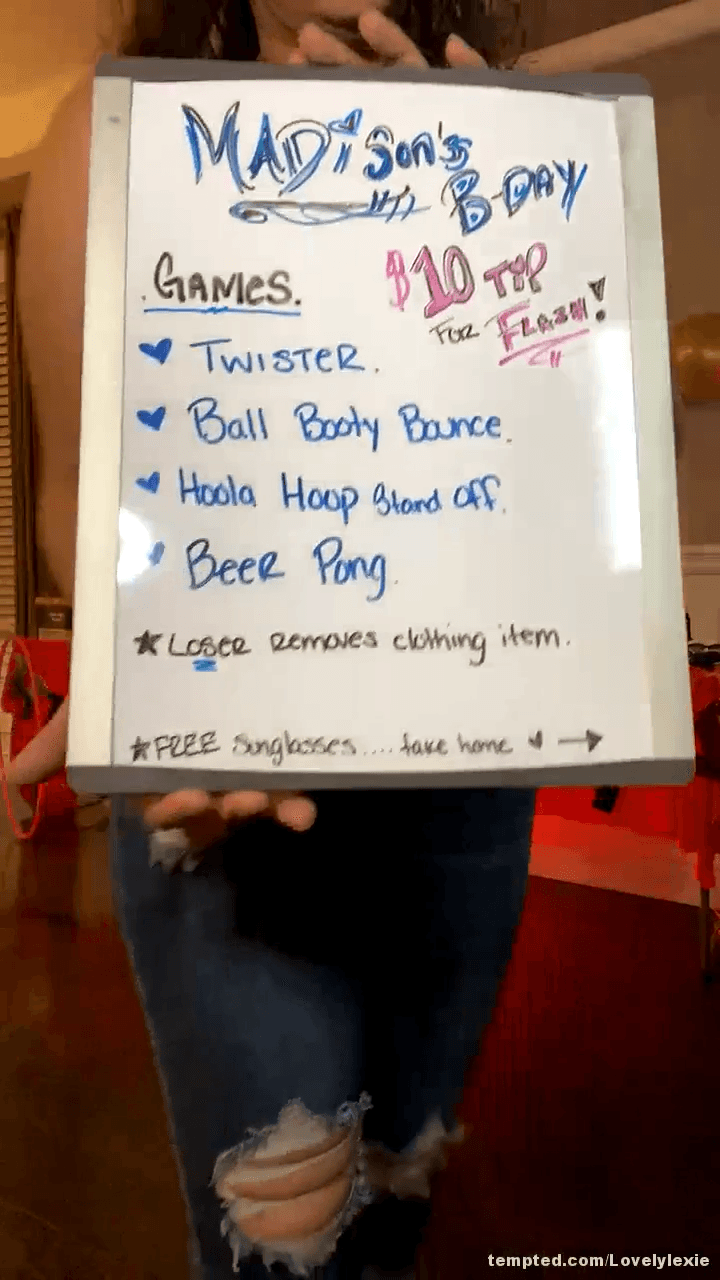 MADiSon's
B-DAY
GAMES.
$10 TIP
FOR FLASH!
TWISTER.
Ball Booty Bounce.
Hoola Hoop Stand Off.
BEER Pong.
★ LOSER REMOVES clothing item.
★ FREE Sunglasses.... take home ♥ →
tempted.com/Lovelylexie